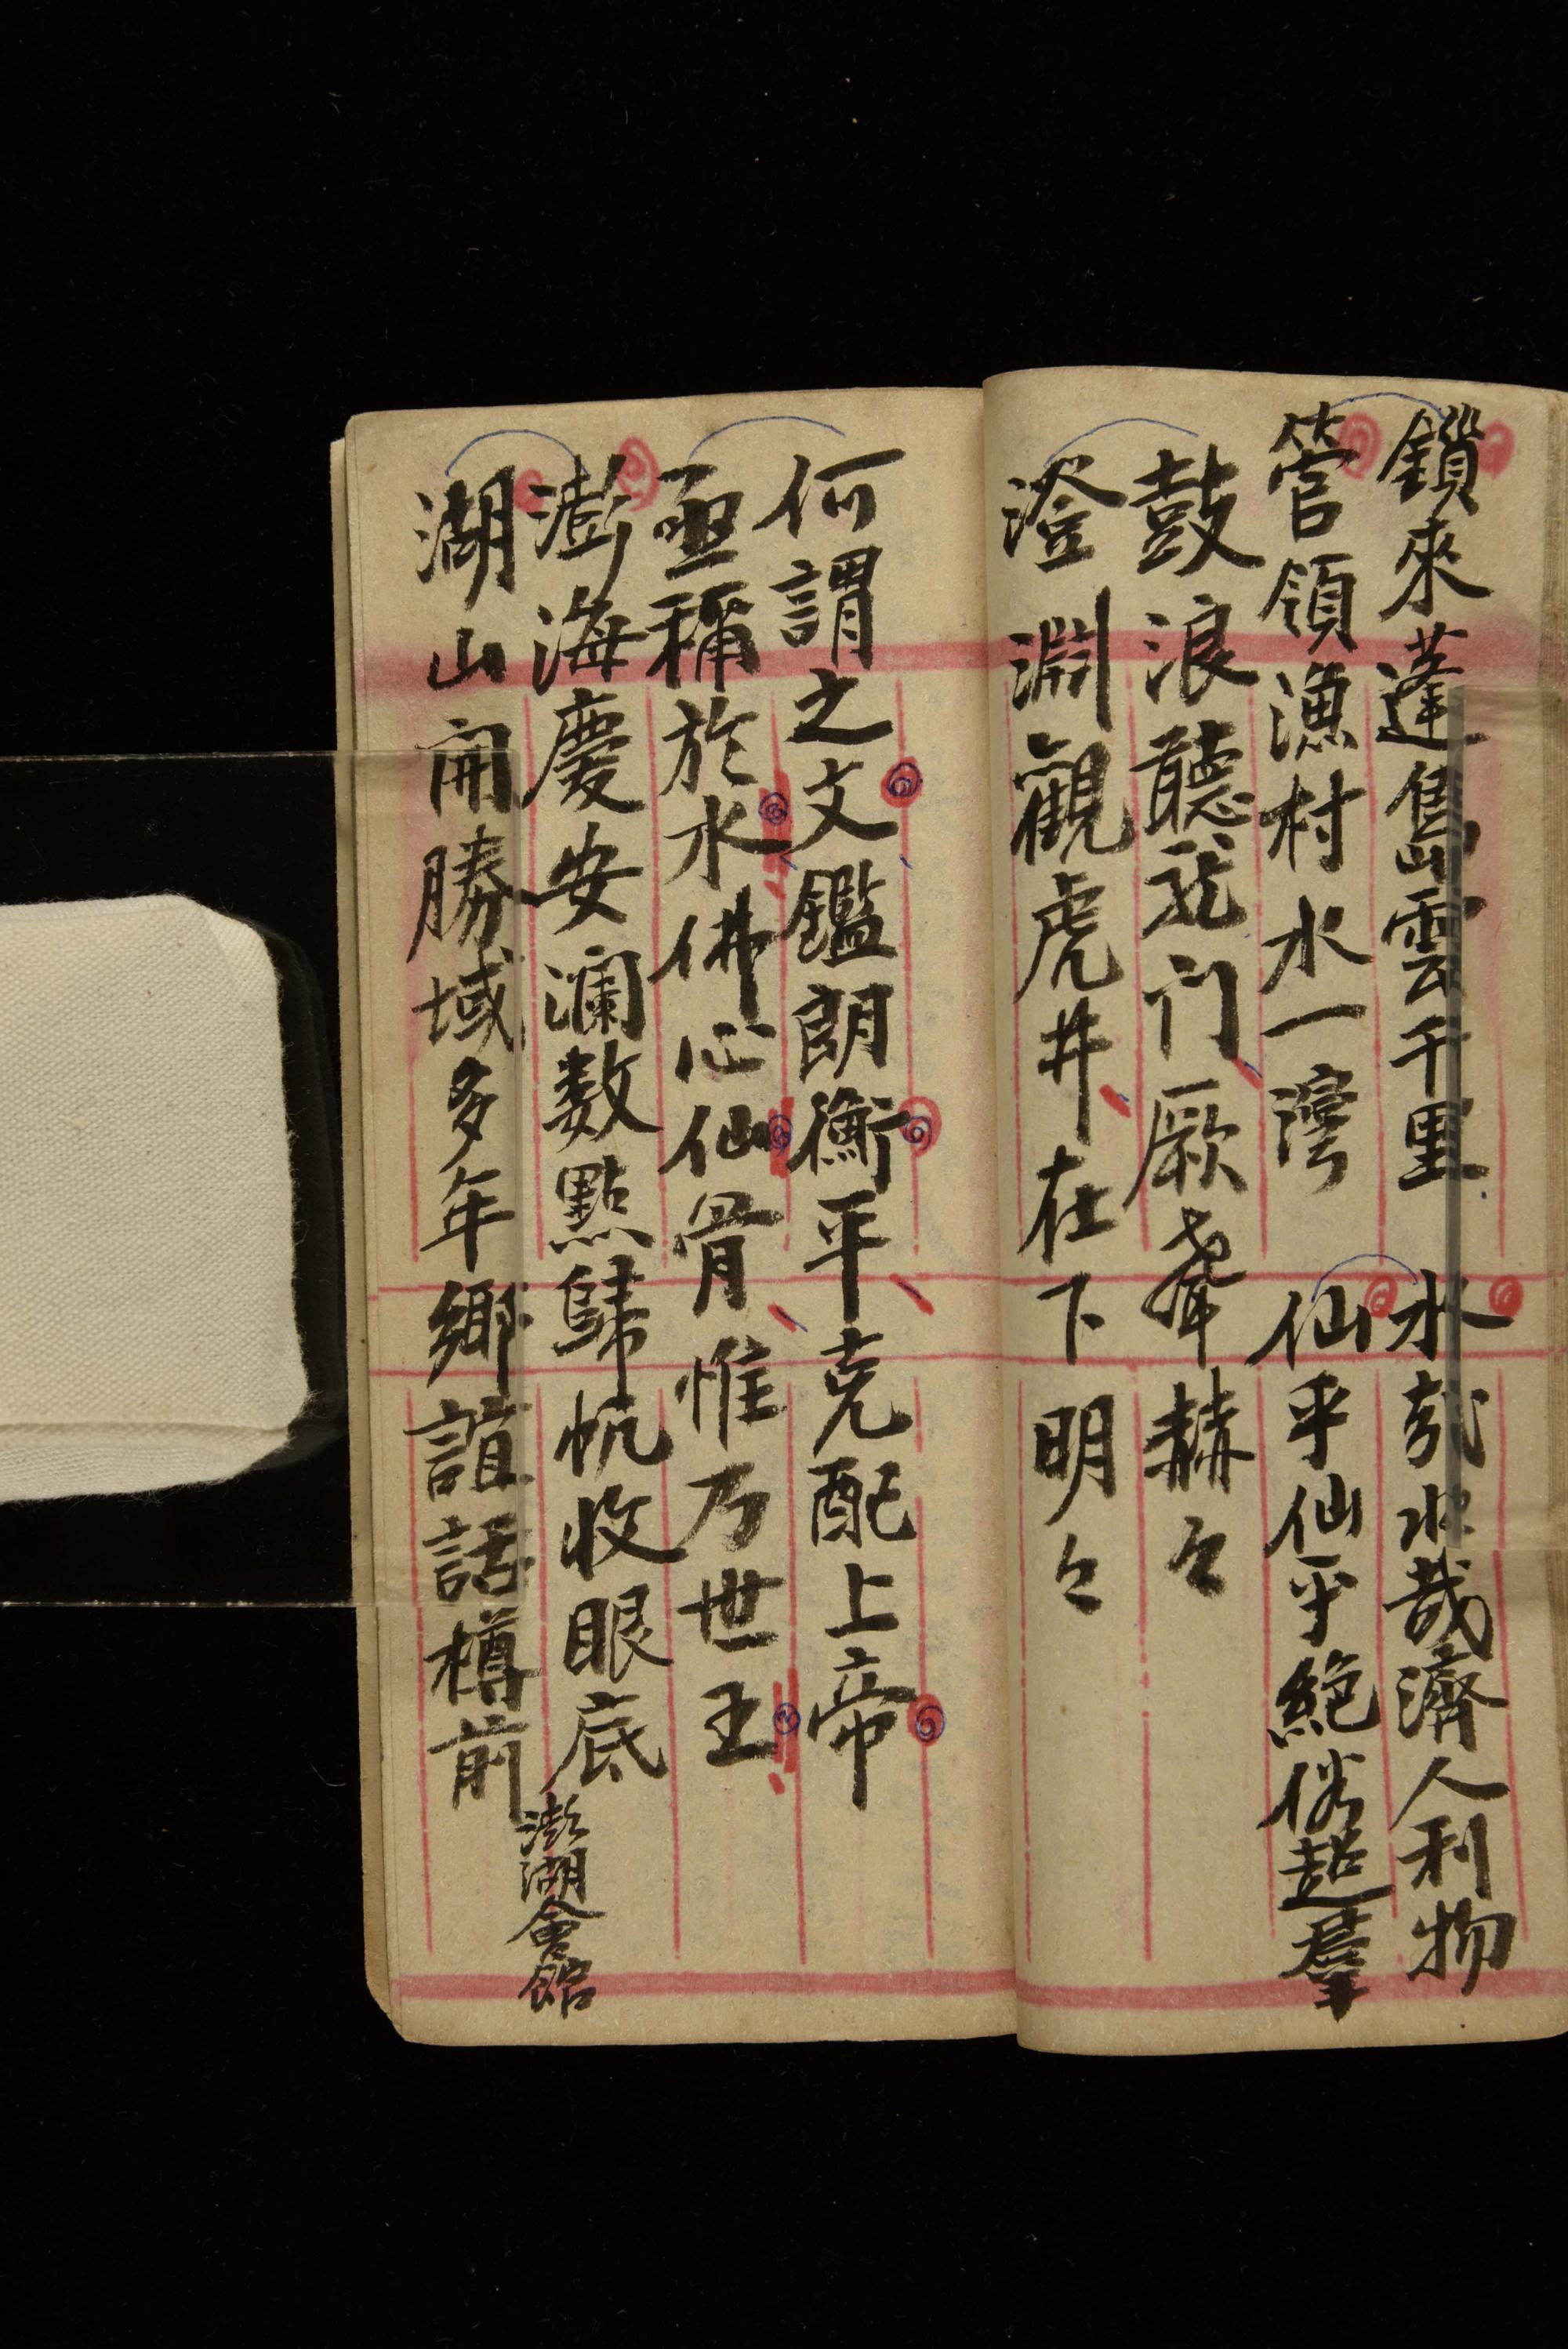 鎖來蓬島雲千里　水哉水哉濟人利物
管領漁村水一灣　仙乎仙乎絕俗超羣
鼓浪聽龍门厥聲赫々
澄淵觀虎井在下明々
何謂之文鑑朗衡平克配上帝
亟稱於水佛心仙骨惟乃世王
澎海慶安瀾数點歸帆收眼底
湖山開勝域多年鄉誼話樽前
澎湖會館